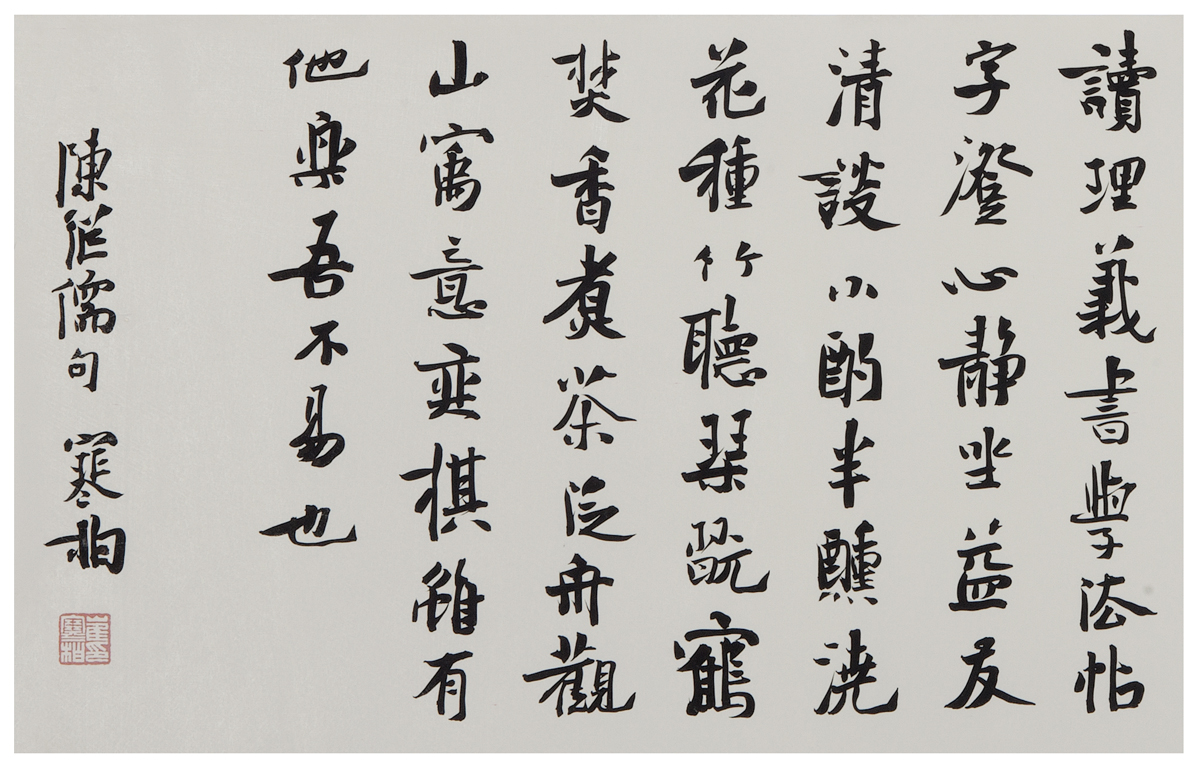 讀理義書學法帖
字澄心靜坐益友
清談小酌半醺澆
花種竹聽琴翫鶴
焚香煮茶泛舟觀
山寓意弈棋雖有
他樂吾不易也
陳繼儒句 寒柏